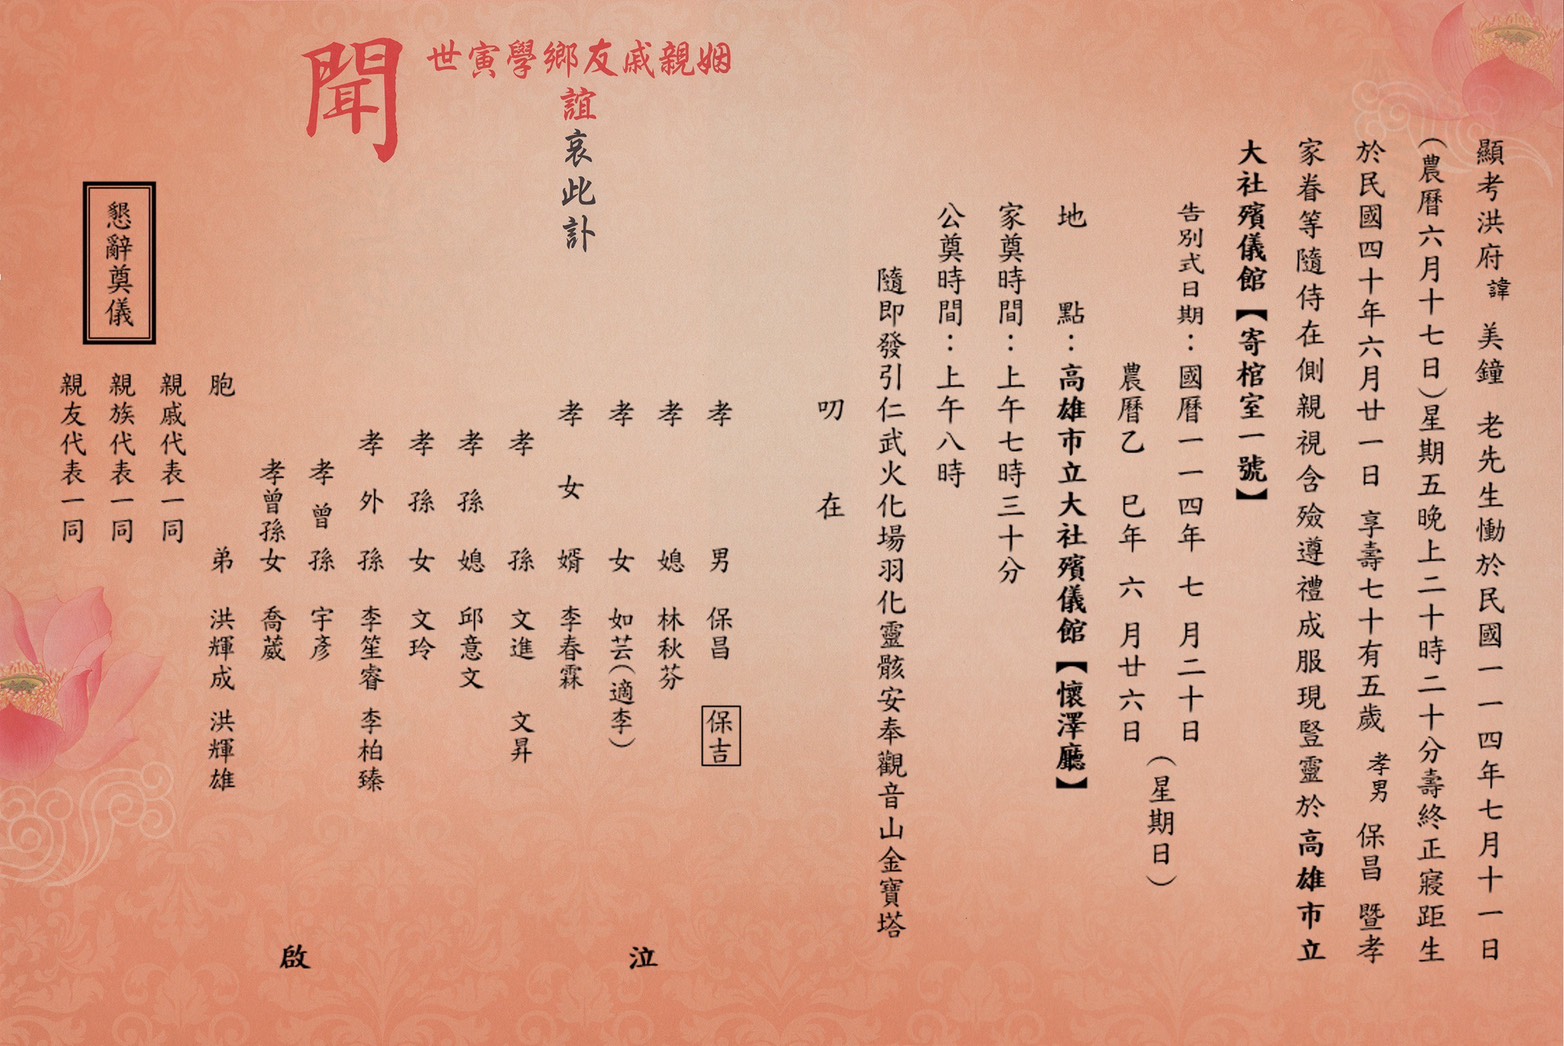 顯考洪府 諱 美鐘 老先生慟於民國一一四年七月十一日
（農曆六月十七日）星期五晚上二十時二十分壽終正寢距生
於民國四十年六月廿一日 享壽七十有五歲 孝男 保昌 暨孝
家眷等隨侍在側親視含殮遵禮成服現豎靈於高雄市立
大社殯儀館【寄棺室一號】
告別式日期：國曆一一四年 七 月二十日
農曆乙 巳年 六 月廿六日
（星期日）
地 點：高雄市立大社殯儀館【懷澤廳】
家奠時間：上午七時三十分
公奠時間：上午八時
隨即發引仁武火化場羽化靈骸安奉觀音山金寶塔
叨 在
姻親戚友鄉學寅世
誼
哀此訃
聞
孝 男 保昌 保吉
孝 媳 林秋芬
孝 女 如芸（適李）
孝 女 婿 李春霖
孝 孫 文進 文昇
孝 孫 媳 邱意文
孝 孫 女 文玲
孝 外 孫 李笙睿 李柏臻
孝 曾 孫 宇彥
孝曾孫女 喬葳
胞 弟 洪輝成 洪輝雄
泣
啟
親戚代表一同
親族代表一同
親友代表一同
懇辭奠儀